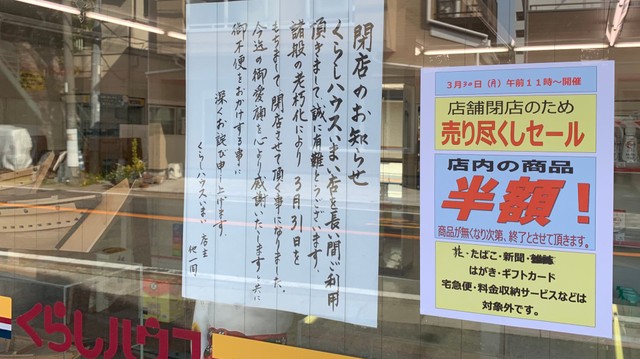 閉店のお知らせ
くらしハウスいまい店を長い間ご利用
頂きまして、誠に有難とうございます。
諸般の老朽化により 3月31日を
もちまして、閉店させて頂く事になりました。
今迄の御愛顧を心より感謝いたします。共に
御不便をおかけする事に
深くお詫び申し上げます。
くらしハウスいまい 店主
他一同
3月30日(月)午前11時〜開催
店舗閉店のため
売り尽くしセール
店内の商品
半額!
商品が無くなり次第、終了とさせて頂きます。
・たばこ・新聞・
はがき・ギフトカード
宅急便・料金収納サービスなどは
対象外です。
くらしハウス